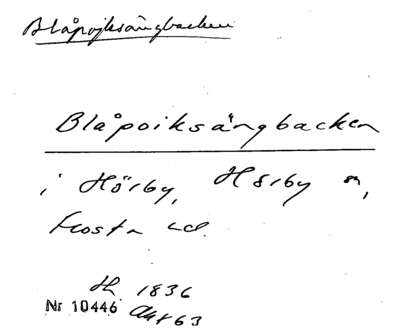 Blåpojksängbacken
Blåpoiksängbacken
i Hörby, Hörby sn,
Frosta hd.
Hl 1836
Nr 10446 Akt 63